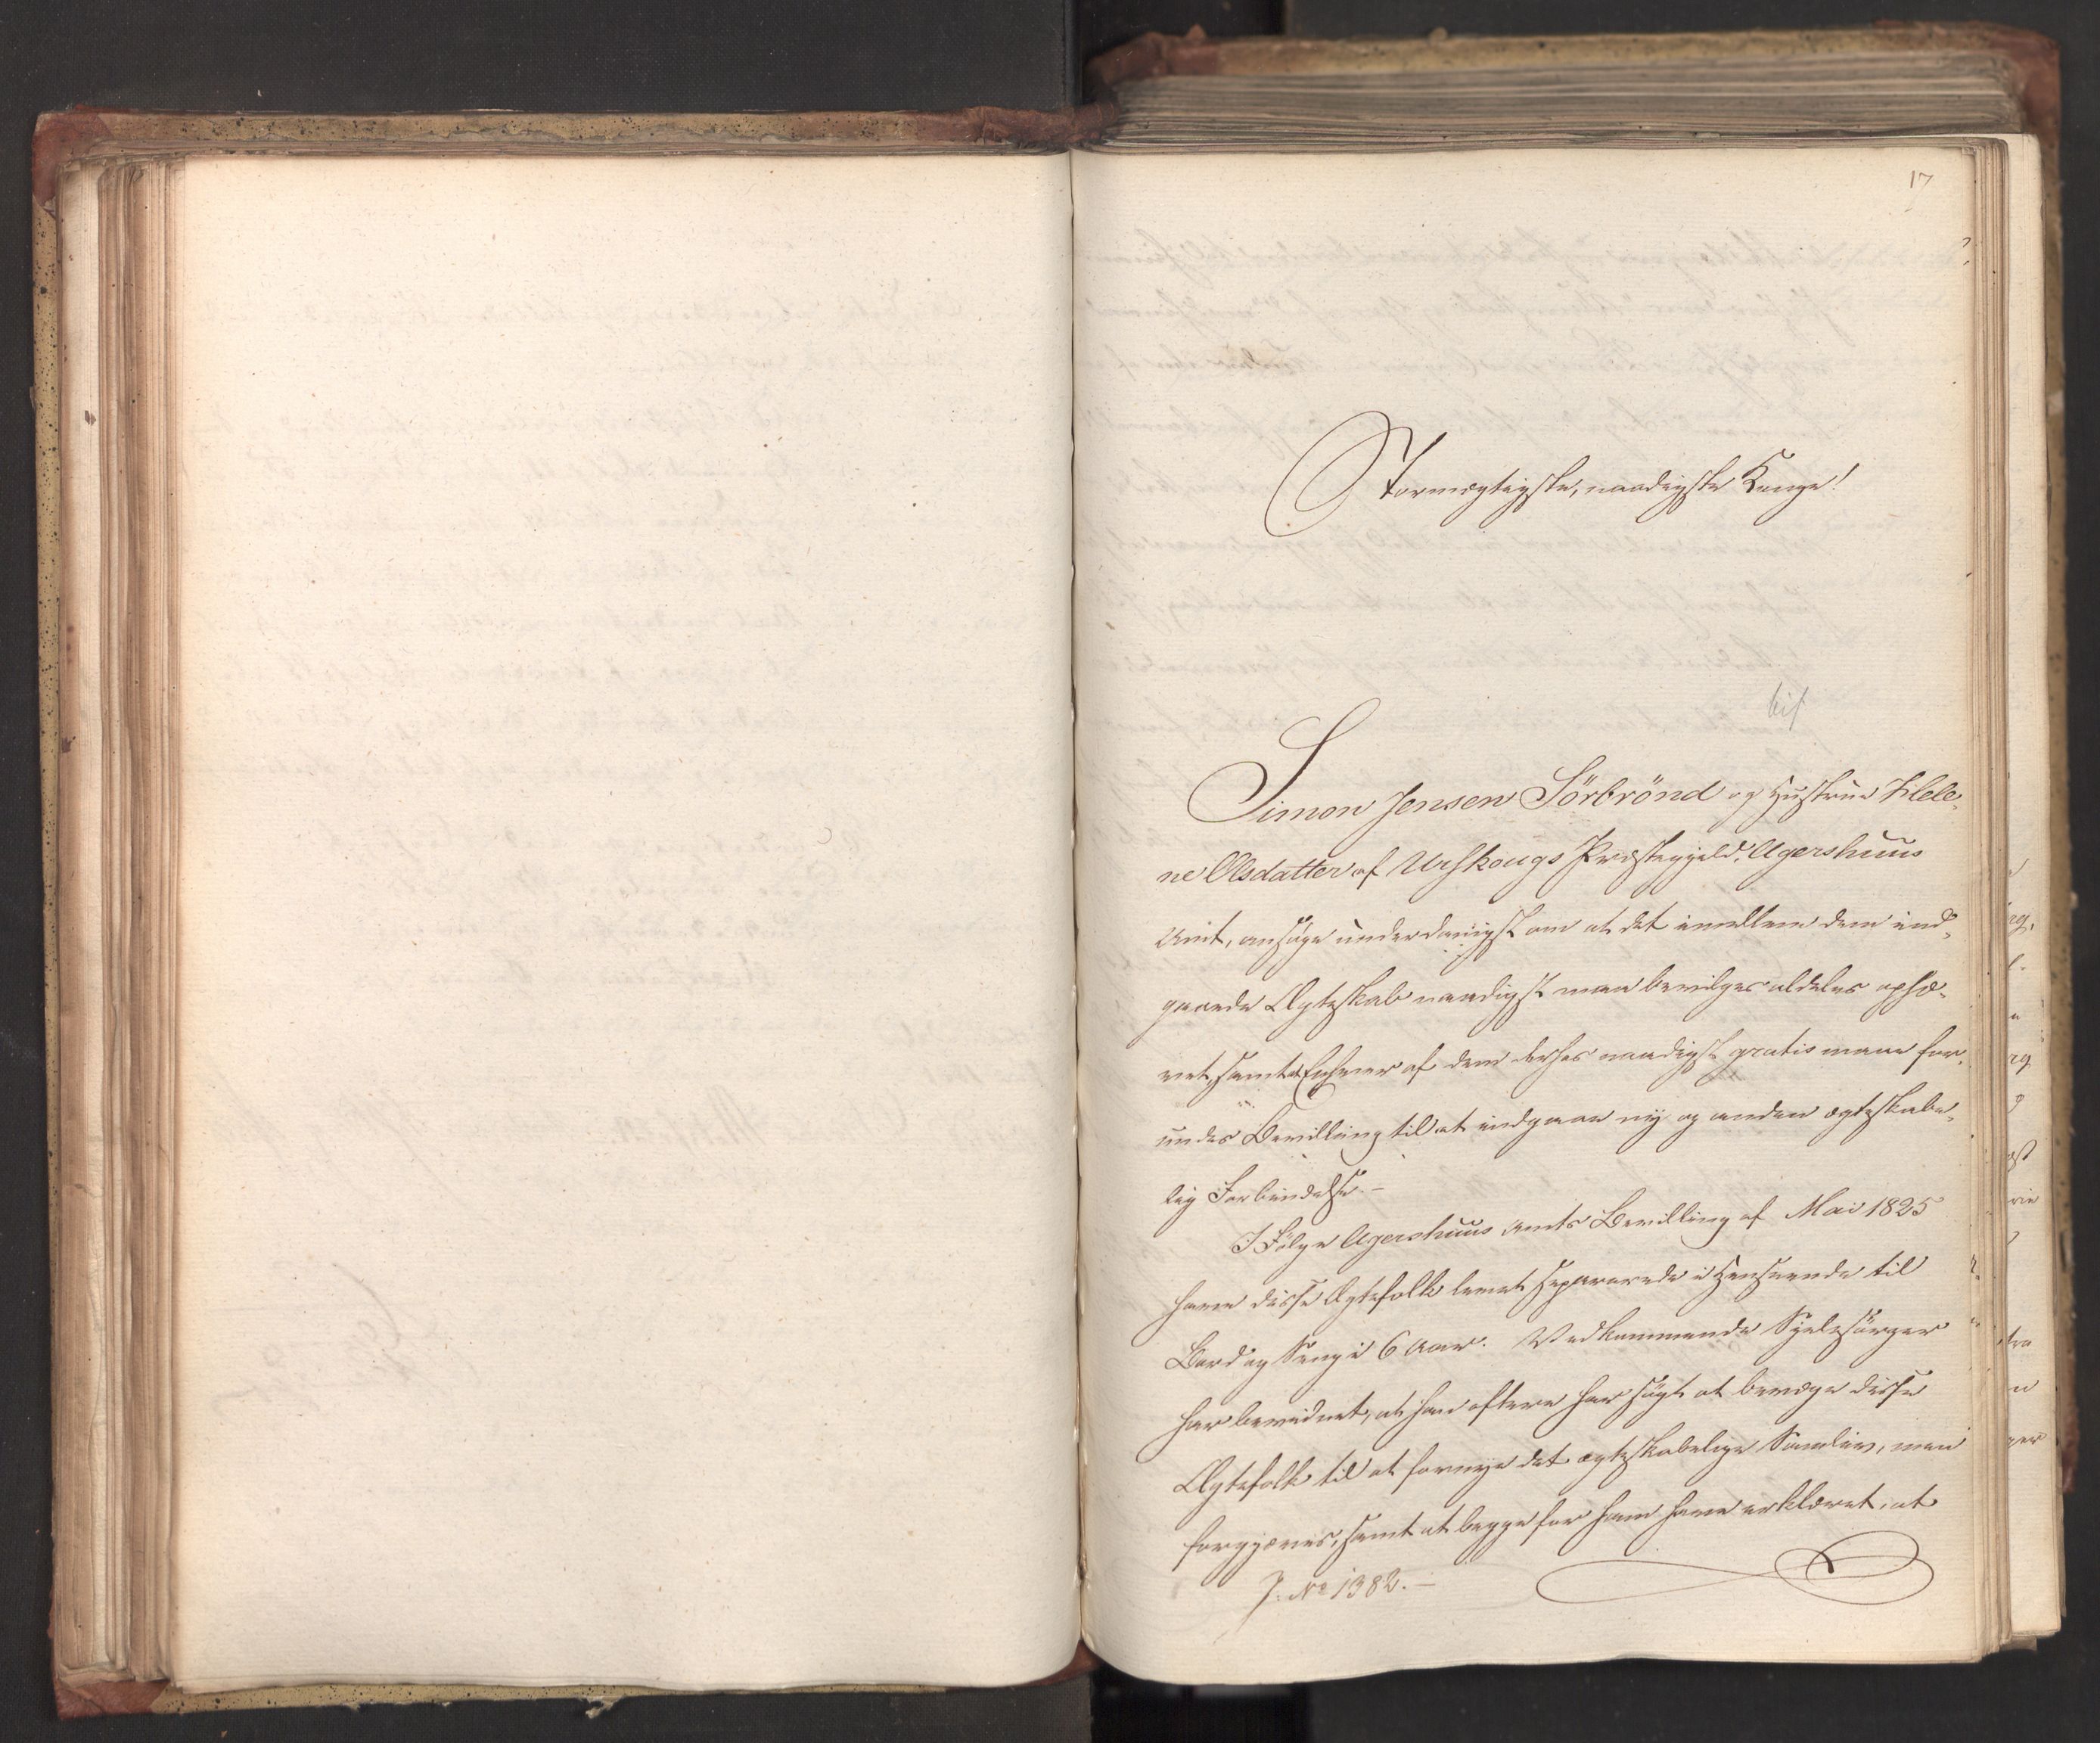 17
Stormægtigste, naadigste Konge!
bif
Simon Jensen Sörbrönd og Hustrue Helle¬
ne Olsdatter af Urskougs Præstegjeld, Agershuus
Amt, ansöge underdanigst om at det imellem dem ind¬
gaaede Ægteskab naadigst maa bevilges aldeles ophæ¬
vet, samt at Enhver af dem derhos naadigst gratis maae for¬
undes Bevilling til at indgaae nÿ og anden ægteskabe¬
lig Forbindelse.-
I Fölge Agershuus Amts Bevilling af Mai 1825
have disse Ægtefolk levet separerede i Henseende til
Bord og Seng i 6 Aar. Vedkommende Sjelesörger
har bevidnet, at han oftere har sögt at bevæge disse
Ægtefolk til at fornye det ægteskabelige Samliv, men
forgjæves, samt at begge for ham have erklæret, at
J. No 1382.-